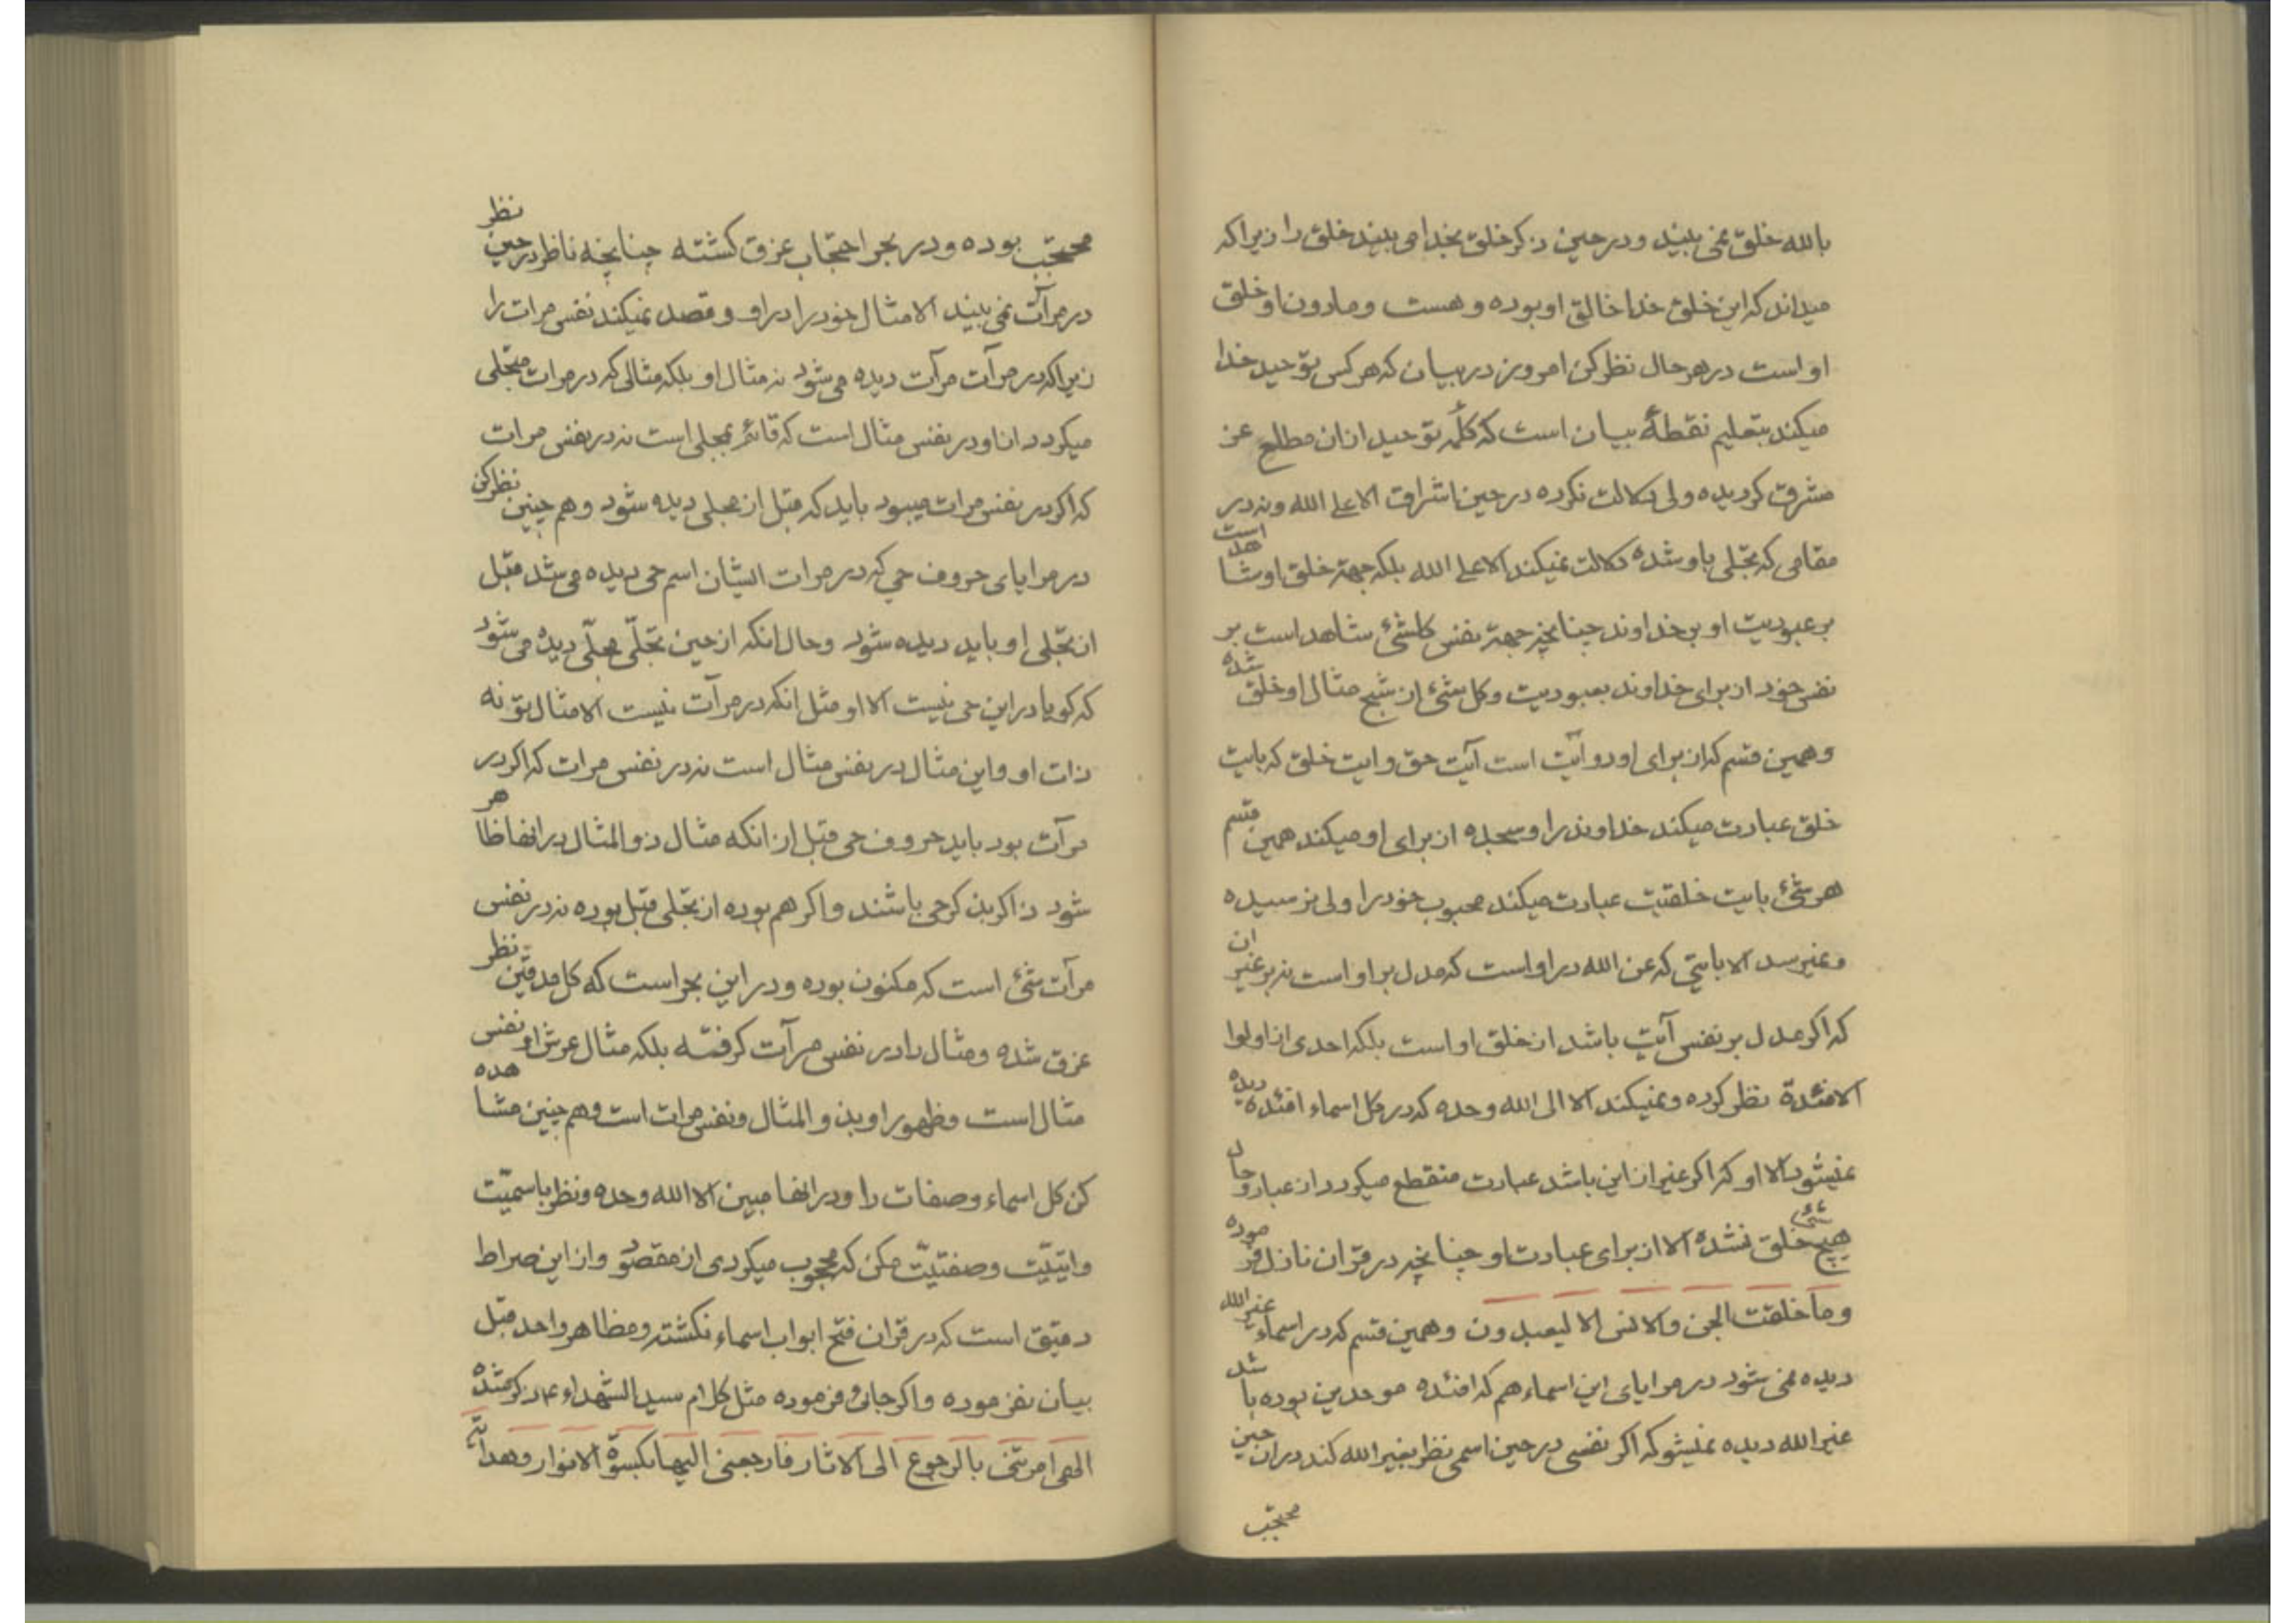 بالله خلق نمی بیند و در حین ذکر خلق بخدا می بیند خلق را زیرا که
میداند که این خلق خدا خالق او بوده و هست و مادون او خلق
او است در هر حال نظر کن امروز در بیان که هر کس توحید خدا
میکند بتعلیم نقطهٔ بیان است که کلمه توحید از ان مطلع عز
مشرق کردیده ولی دلالت نکرده در حین اشراق الا علی الله و نه در
مقامی که تجلی باو شده دلالت نمیکند الا علی الله بلکه جهة خلق او شاهد است
بر عبودیت او بر خداوند چنانچه جهة نفس کلشئ شاهد است بر
نفس خود از برای خداوند بعبودیت و کل شئ از شبح مثال او خلق شده
و همین قسم که از برای او دو آیت است آیت حق و ایت خلق که بایت
خلق عبادت میکند خداوند را و سجده از برای او میکند همین قسم
هر شئ بایت خلقتیت عبادت میکند محبوب خود را ولی نرسیده
و نمیرسد الا بایتی که عن الله در او است که مدل بر او است نه بر غیر ان
که اکر مدل بر نفس آیت باشد از خلق او است بلکه احدی از اولوا
الافئدة نظر کرده و نمیکند الا الی الله وحده که در کل اسماء افئده دیده
نمیشود الا او که اکر غیر از این باشد عبادت منقطع میکردد از عباد و حال
هیچ شئ خلق نشده الا از برای عبادت او چنانچه در قران نازل فرموده
وما خلقت الجن والانس الا لیعبدون و همین قسم که در اسماء غیر الله
دیده نمی شود در مرایای این اسماء هم که افئده موحدین بوده باشد
غیر الله دیده نمیشو که اکر نفسی در حین اسمی نظر بغیر الله کند در ان حین
محتجب
محتجب بوده و در بحر احتجاب غرق کشته چنانچه ناظر در حین نظر
در مرآت نمی بیند الا مثال خود را در او و قصد نمیکند نفس مرات را
زیرا که در مرآت مرآت دیده می شود نه مثال او بلکه مثالی که در مرات متجلی
میکردد از او در نفس مثال است که قائم بمجلی است نه در نفس مرات
که اکر در نفس مرات میبود باید که قبل از تجلی دیده شود و هم چنین نظر کن
در مرایای حروف حی که در مرات ایشان اسم حی دیده می شد قبل
از تجلی او باید دیده شود و حال انکه از حین تجلّی مجلّی دیده می شود
که کویا در این حی نیست الا او مثل انکه در مرآت نیست الا مثال تو نه
ذات او و این مثال در نفس مثال است نه در نفس مرات که اکر در
مرآت بود باید حروف حی قبل از انکه مثال ذو المثال در انها ظاهر
شود ذاکر بذکر حی باشند و اکر هم بوده از تجلی قبل بوده نه در نفس
مرآت شئ است که مکنون بوده و در این بحر است که کل مدققین نظر
غرق شده و مثال را در نفس مرآت کرفته بلکه مثال عرش او نفس
مثال است و ظهور او بذو المثال و نفس مرات است و هم چنین مشاهده
کن کل اسماء و صفات را و در انها مبین الا الله وحده و نظر باسمیّت
و ایتیّت و صفتیّت مکن که محجوب میکردی از مقصود و از این صراط
دقیق است که در قران فتح ابواب اسماء نکشته و مظاهر واحد قبل
بیان نفرموده و اکر جائی فرموده مثل کلام سید الشهداء ع ذکر شده
الهی امرتنی بالرجوع الی الاثار فارجعنی الیها بکسوة الانوار وهدایة